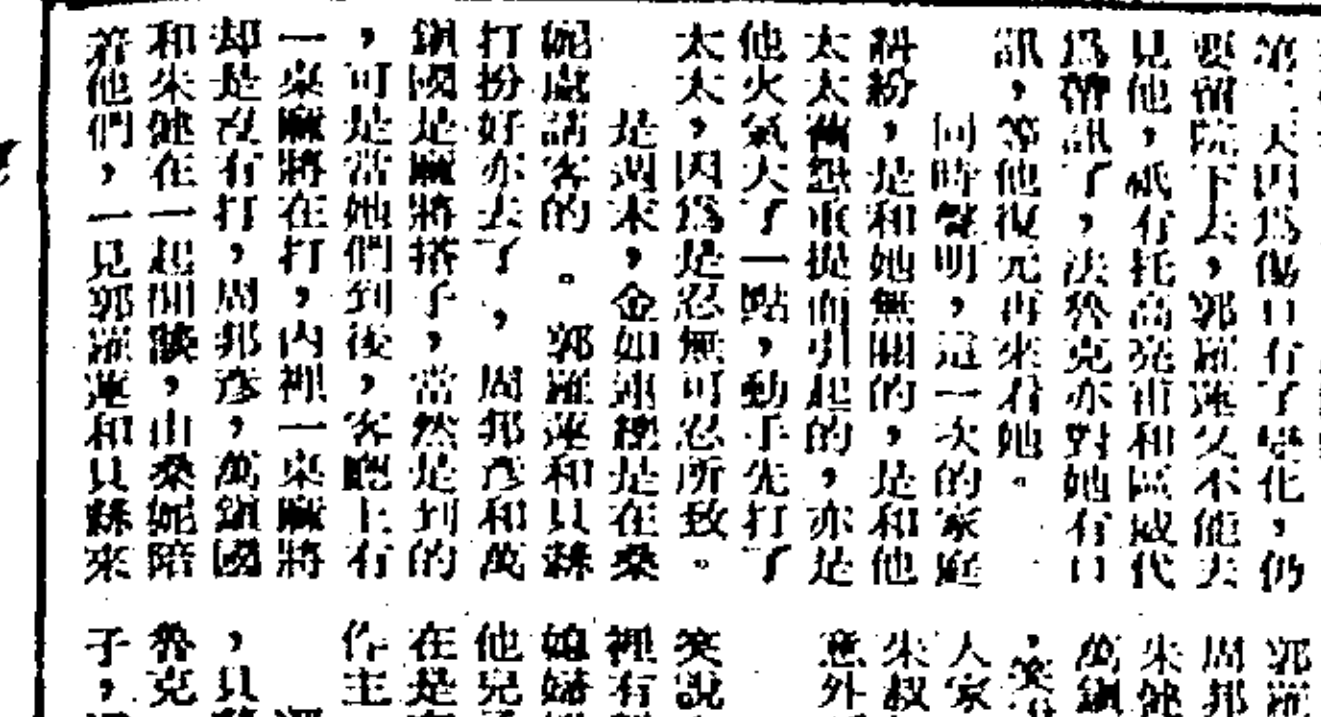 第二天因為傷口有了變化，仍
要留院下去，郭羅蓮又不能去
見他，祇有托高亮甫和區威代
為帶訊了，法魯克亦對她有口
訊，等他復元再來看她。
同時聲明，這一次的家庭
糾紛，是和她無關的，是和他
太太舊怨重提而引起的，亦是
他火氣大了一點，動手先打了
太太，因為是忍無可忍所致。
是週末，金如速梗是在桑
妮處請客的。郭羅蓮和貝絲
打扮好亦去了，周邦彥和萬
鎮國是麻將搭子，當然是到的
，可是當她們到後，客廳上有
一桌麻將在打，內裡一桌麻將
却是沒有打，周邦彥，萬鎮國
和朱健在一起開談，由桑妮陪
着他們，一見郭羅蓮和貝絲來
郭羅
周邦
朱健
萬鎮
，笑
人家
朱叔
意外
笑說
裡有
媳婦
他兒
在是
作主
，貝
魯克
子，